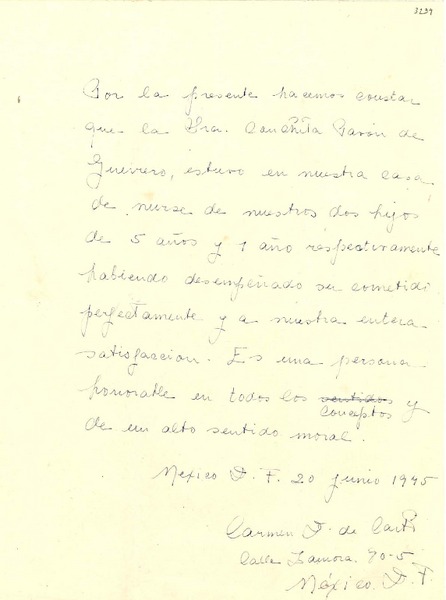 3239
Por la presente hacemos constar
que la Sra. Conchita Pavón de
Guerrero, estuvo en nuestra casa
de nurse de nuestros dos hijos
de 5 años y 1 año respectivamente
habiendo desempeñado su cometido
perfectamente y a nuestra entera
satisfaccion. Es una persona
honorable en todos los sentidos y
conceptos
de un alto sentido moral.
Mexico D. F. 20 junio 1945
Carmen D. de
Calle Zamora. 90-5
México. D. F.